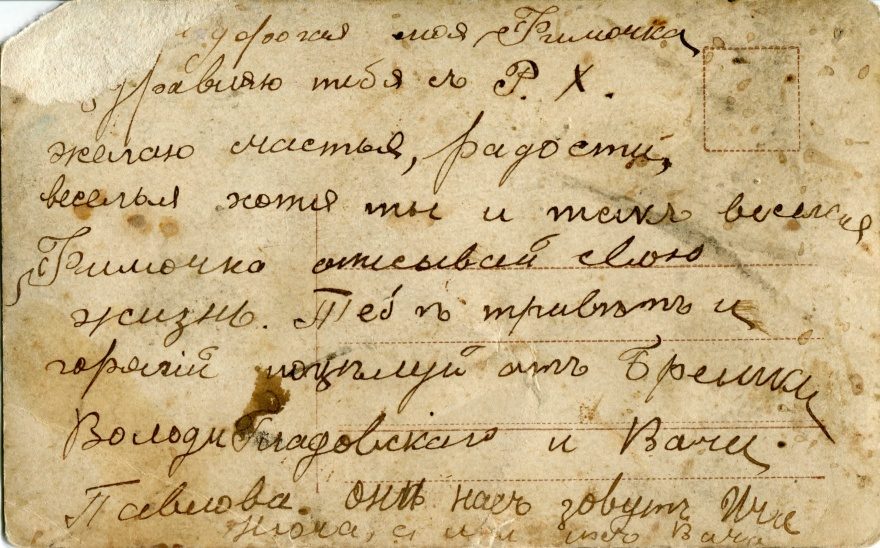 дорогая моя Римочка
здравляю тебя съ Р. Х.
желаю счастья, радости,
веселья хотя ты и такъ веселая
Римочка описывай свою
жизнь. Тебѣ привѣтъ и
горячій поцѣлуй отъ
Володи и
Павлова. онѣ насъ зовутъ